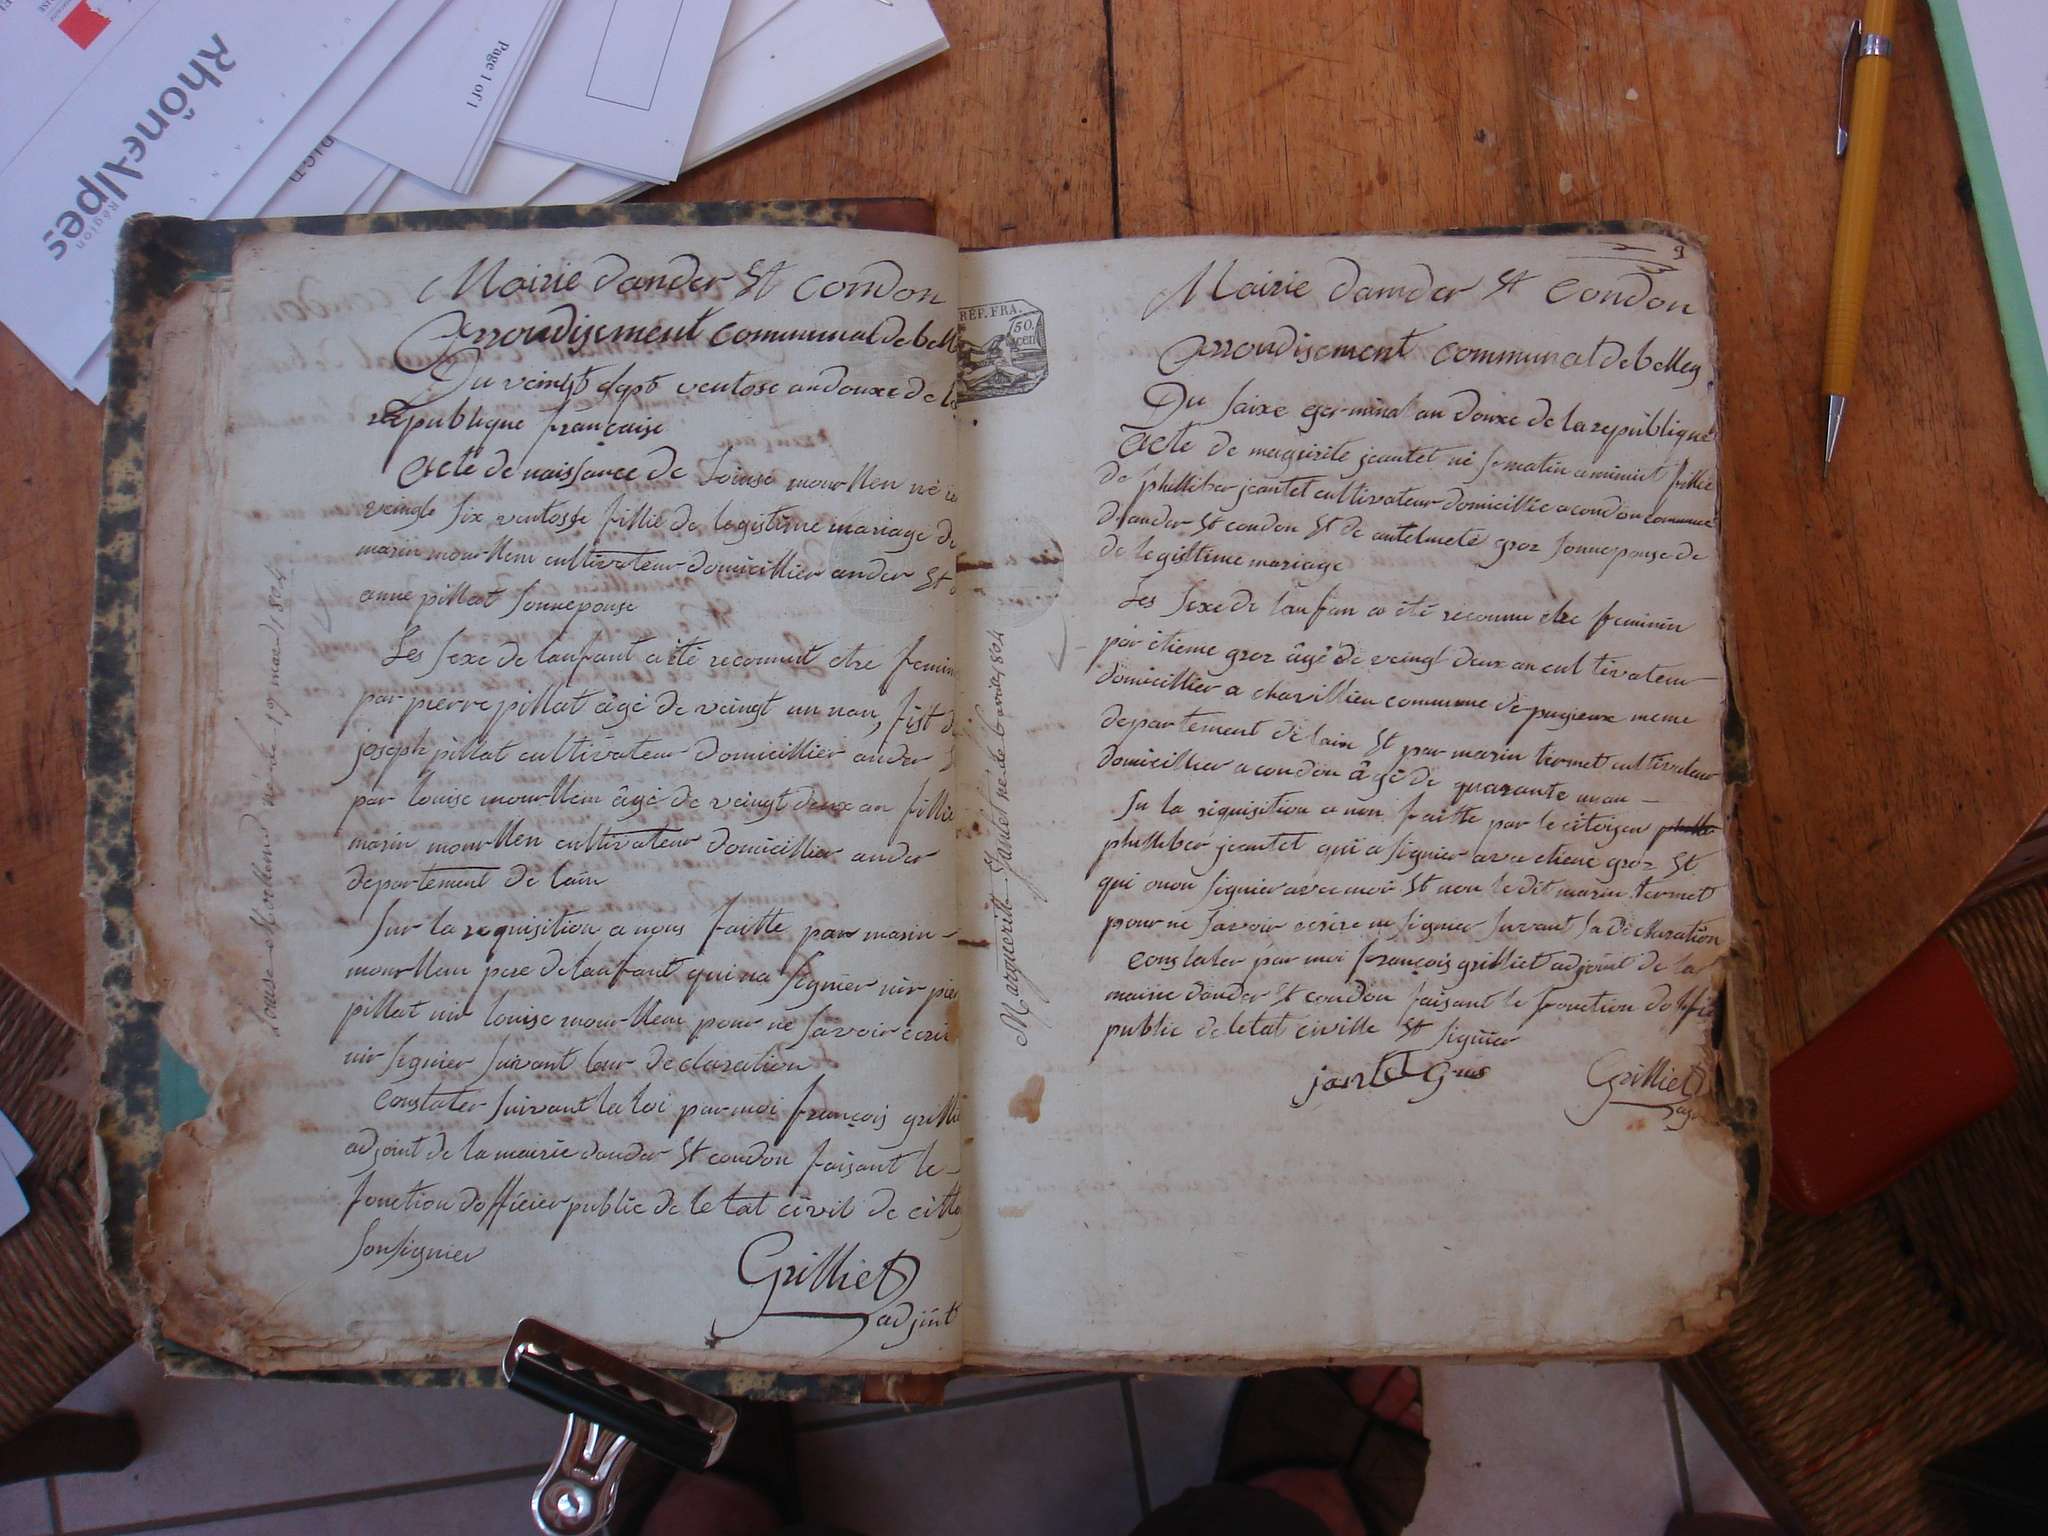 Région
Rhône-Alpes
Page 1 of 1
Mairie dander St condon
Arrondisement communal de bell
Du veingt sept ventose an douxe de la
republique francaise
Acte de naissance de Louise mourllen né
veingte six ventosse fillie de legistime mariage de
marin mourllem cultivateur domicillier ander St
anne pillat sonneponse
Les sexe de lanfant a été reconnut etre femin
par pierre pillat âgé de veingt un nan, fist de
joseph pillat cultivateur domicillier ander
par louise mourllem âgé de veingt deux an fillie
marin mourllen cultivateur domicillier ander
departement de lain
Sur la requisition a nous faitte par marin
mourllem pere de lanfant qui na signier nir pier
pillat nir louise mourllem pour ne savoir ecri
nir signier suivant leur declaration
constater suivant la loi par moi françois grilli
adjoint de la mairie dander St condon faisant le
fonction dofficier public de letat civil de citte
sonsignier
Grilliet
adjint
Louise né le 19 mars 1804
REP. FRA.
50.
cen
9
Mairie dander St condon
Arrondisement communal de belley
Du saixe germinal an douxe de la republique
acte de magirite jeantet né se matin aminuit fillie
de philliber jeantet cultivateur domicillie a condon commune
dander St condon St de antelmete groz sonneponse de
de legistime mariage
Les sexe de lanfan a été reconnu etre feminin
par etienne groz âgé de veingt deux an cultivateur
domicillier a chavillieu commune de pugieux meme
departement de lain St par marin termet cultivateur
domicillier a condon âgé de quarante unan
Su la requisition a nou faitte par le citoyen
philliber jeantet qui a signier ave etiene groz St
qui onon signier avec moi St non le dit marin termet
pour ne savoir ecrire ni signier suivant sa declaration
constater par moi françois grilliet adjoint de la
mairie dander St condon faisant le fonction doffic
public de letat civille St signier
jantet Gros
Grilliet
adj
Marguerite Jantet né le 6 avril 1804